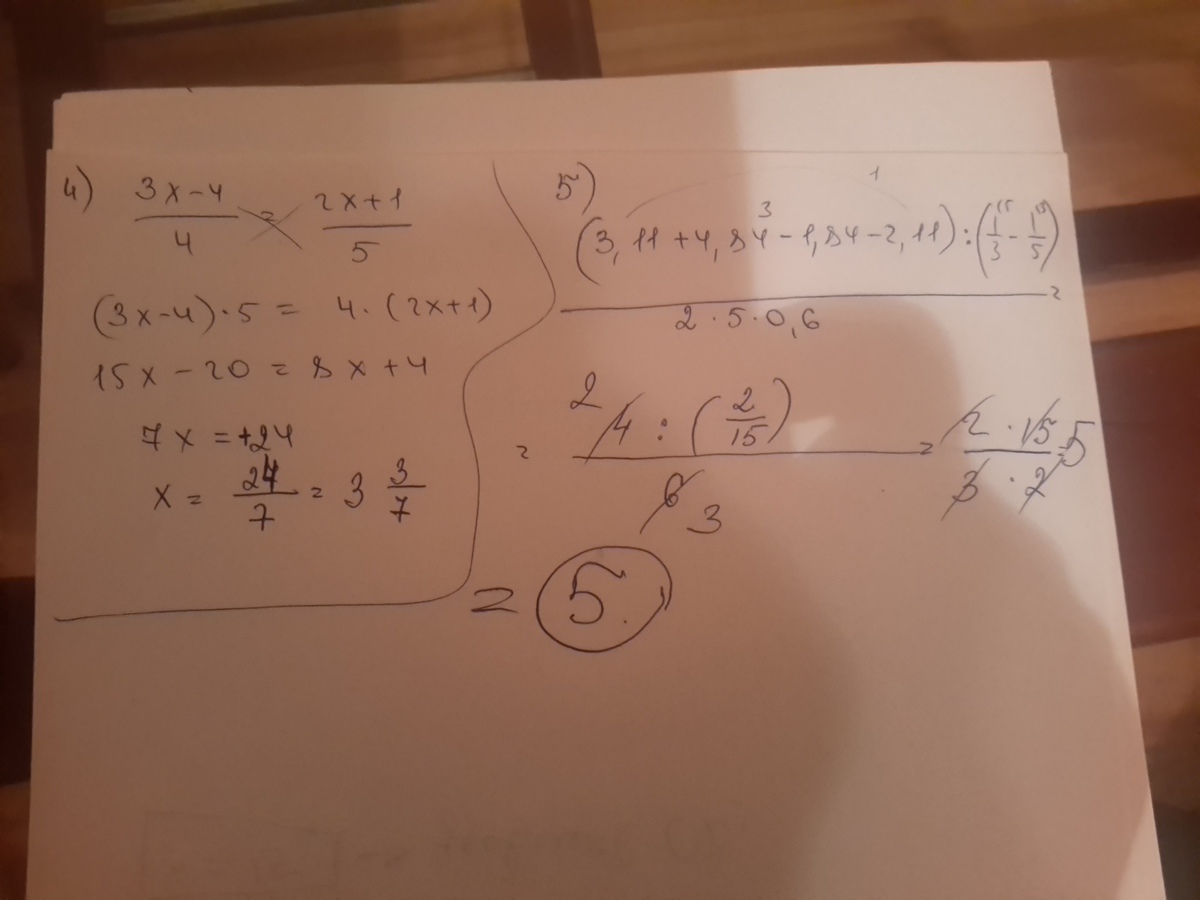 4) (3x-4)/4 = (2x+1)/5
(3x-4)·5 = 4·(2x+1)
15x-20 = 8x+4
7x = +24
x = 24/7 = 3 3/7
5) 1
3 15 15
(3,11+4,84-1,84-2,11):(1/3-1/5)
2·5·0,6 =
= 2 4:(2/15) / 6 3 = 2·15 / 3·2 = 5
= 5.